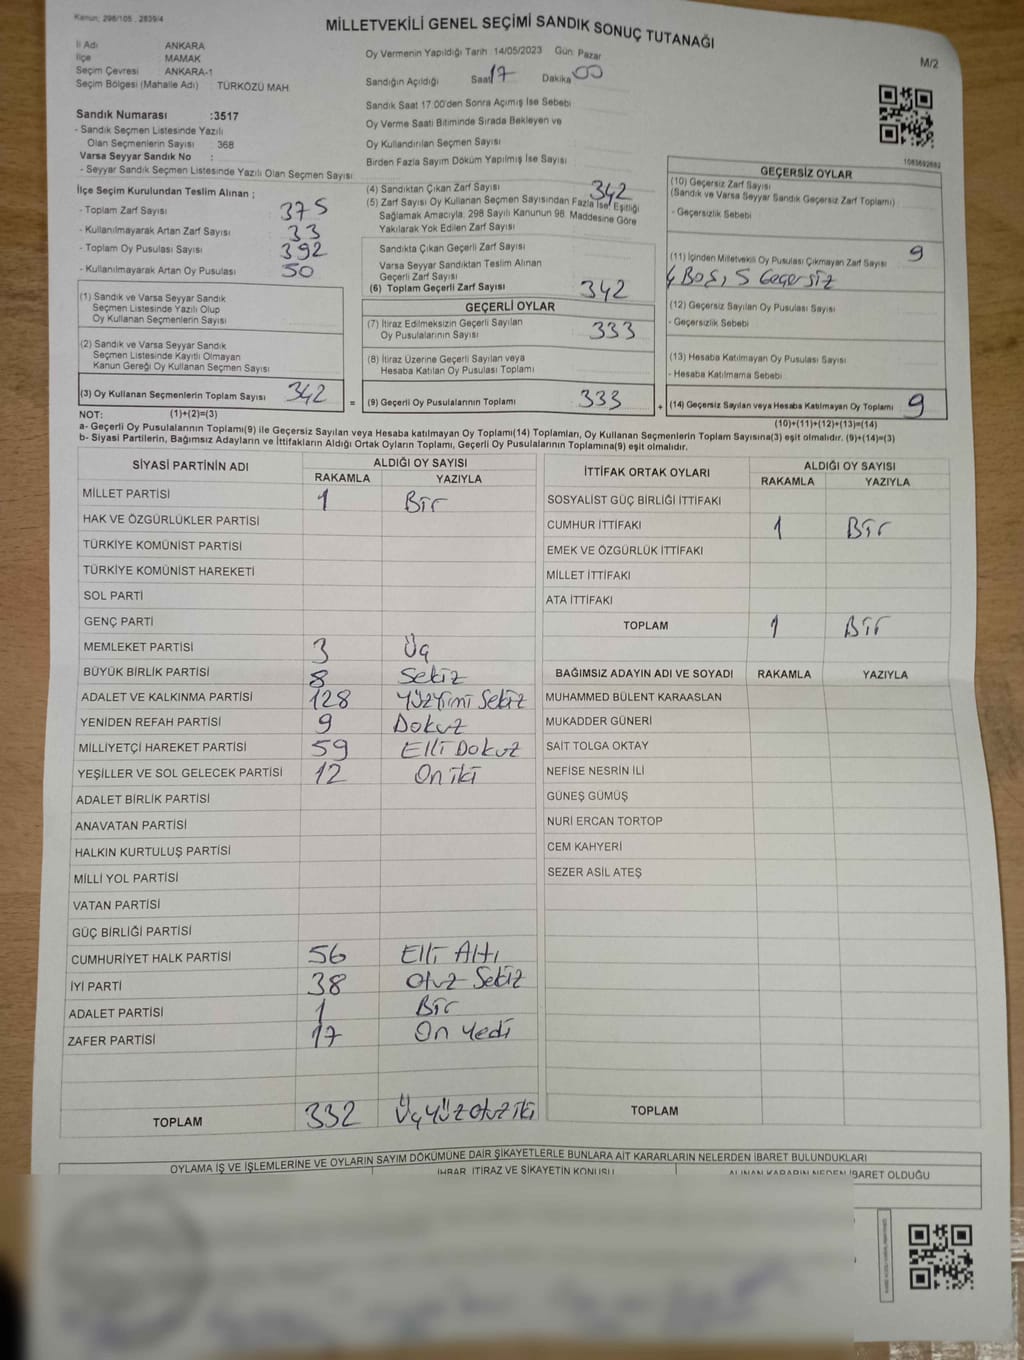 Kanun: 298/105 , 2839/4
MİLLETVEKİLİ GENEL SEÇİMİ SANDIK SONUÇ TUTANAĞI
M/2
İl Adı ANKARA
İlçe MAMAK
Seçim Çevresi ANKARA-1
Seçim Bölgesi (Mahalle Adı) : TÜRKÖZÜ MAH.
Oy Vermenin Yapıldığı Tarih 14/05/2023 Gün: Pazar
Sandığın Açıldığı Saat 17 Dakika 00
Sandık Saat 17.00'den Sonra Açımış İse Sebebi
Oy Verme Saati Bitiminde Sırada Bekleyen ve
Oy Kullandırılan Seçmen Sayısı
Birden Fazla Sayım Döküm Yapılmış İse Sayısı
Sandık Numarası :3517
- Sandık Seçmen Listesinde Yazılı
Olan Seçmenlerin Sayısı : 368
Varsa Seyyar Sandık No :
- Seyyar Sandık Seçmen Listesinde Yazılı Olan Seçmen Sayısı
İlçe Seçim Kurulundan Teslim Alınan ;
- Toplam Zarf Sayısı 375
- Kullanılmayarak Artan Zarf Sayısı 33
- Toplam Oy Pusulası Sayısı 392
- Kullanılmayarak Artan Oy Pusulası 50
(1) Sandık ve Varsa Seyyar Sandık
Seçmen Listesinde Yazılı Olup
Oy Kullanan Seçmenlerin Sayısı
(2) Sandık ve Varsa Seyyar Sandık
Seçmen Listesinde Kayıtlı Olmayan
Kanun Gereği Oy Kullanan Seçmen Sayısı
(3) Oy Kullanan Seçmenlerin Toplam Sayısı 342 =
(4) Sandıktan Çıkan Zarf Sayısı 342
(5) Zarf Sayısı Oy Kullanan Seçmen Sayısından Fazla İse, Eşitliği
Sağlamak Amacıyla, 298 Sayılı Kanunun 98. Maddesine Göre
Yakılarak Yok Edilen Zarf Sayısı
Sandıkta Çıkan Geçerli Zarf Sayısı
Varsa Seyyar Sandıktan Teslim Alınan
Geçerli Zarf Sayısı
(6) Toplam Geçerli Zarf Sayısı 342
GEÇERLİ OYLAR
(7) İtiraz Edilmeksizin Geçerli Sayılan
Oy Pusulalarının Sayısı 333
(8) İtiraz Üzerine Geçerli Sayılan veya
Hesaba Katılan Oy Pusulası Toplamı
(9) Geçerli Oy Pusulalarının Toplamı 333 +
1085692682
GEÇERSİZ OYLAR
(10) Geçersiz Zarf Sayısı
(Sandık ve Varsa Seyyar Sandık Geçersiz Zarf Toplamı)
- Geçersizlik Sebebi
(11) İçinden Milletvekili Oy Pusulası Çıkmayan Zarf Sayısı 9
4 Boş, 5 Geçersiz
(12) Geçersiz Sayılan Oy Pusulası Sayısı
- Geçersizlik Sebebi
(13) Hesaba Katılmayan Oy Pusulası Sayısı
- Hesaba Katılmama Sebebi
(14) Geçersiz Sayılan veya Hesaba Katılmayan Oy Toplamı 9
NOT: (1)+(2)=(3) (10)+(11)+(12)+(13)=(14)
a- Geçerli Oy Pusulalarının Toplamı(9) ile Geçersiz Sayılan veya Hesaba katılmayan Oy Toplamı(14) Toplamları, Oy Kullanan Seçmenlerin Toplam Sayısına(3) eşit olmalıdır. (9)+(14)=(3)
b- Siyasi Partilerin, Bağımsız Adayların ve İttifakların Aldığı Ortak Oyların Toplamı, Geçerli Oy Pusulalarının Toplamına(9) eşit olmalıdır.
SİYASİ PARTİNİN ADI ALDIĞI OY SAYISI
RAKAMLA YAZIYLA
MİLLET PARTİSİ 1 Bir
HAK VE ÖZGÜRLÜKLER PARTİSİ
TÜRKİYE KOMÜNİST PARTİSİ
TÜRKİYE KOMÜNİST HAREKETİ
SOL PARTİ
GENÇ PARTİ
MEMLEKET PARTİSİ 3 Üç
BÜYÜK BİRLİK PARTİSİ 8 Sekiz
ADALET VE KALKINMA PARTİSİ 128 Yüzyirmi Sekiz
YENİDEN REFAH PARTİSİ 9 Dokuz
MİLLİYETÇİ HAREKET PARTİSİ 59 Elli Dokuz
YEŞİLLER VE SOL GELECEK PARTİSİ 12 On iki
ADALET BİRLİK PARTİSİ
ANAVATAN PARTİSİ
HALKIN KURTULUŞ PARTİSİ
MİLLİ YOL PARTİSİ
VATAN PARTİSİ
GÜÇ BİRLİĞİ PARTİSİ
CUMHURİYET HALK PARTİSİ 56 Elli Altı
İYİ PARTİ 38 Otuz Sekiz
ADALET PARTİSİ 1 Bir
ZAFER PARTİSİ 17 On Yedi
TOPLAM 332 Üç Yüz Otuz iki
İTTİFAK ORTAK OYLARI ALDIĞI OY SAYISI
RAKAMLA YAZIYLA
SOSYALİST GÜÇ BİRLİĞİ İTTİFAKI
CUMHUR İTTİFAKI 1 Bir
EMEK VE ÖZGÜRLÜK İTTİFAKI
MİLLET İTTİFAKI
ATA İTTİFAKI
TOPLAM 1 Bir
BAĞIMSIZ ADAYIN ADI VE SOYADI RAKAMLA YAZIYLA
MUHAMMED BÜLENT KARAASLAN
MUKADDER GÜNERİ
SAİT TOLGA OKTAY
NEFİSE NESRİN İLİ
GÜNEŞ GÜMÜŞ
NURİ ERCAN TORTOP
CEM KAHYERİ
SEZER ASİL ATEŞ
TOPLAM
OYLAMA İŞ VE İŞLEMLERİNE VE OYLARIN SAYIM DÖKÜMÜNE DAİR ŞİKAYETLERLE BUNLARA AİT KARARLARIN NELERDEN İBARET BULUNDUKLARI
İHBAR, İTİRAZ VE ŞİKAYETİN KONUSU ALINAN KARARIN NEDEN İBARET OLDUĞU